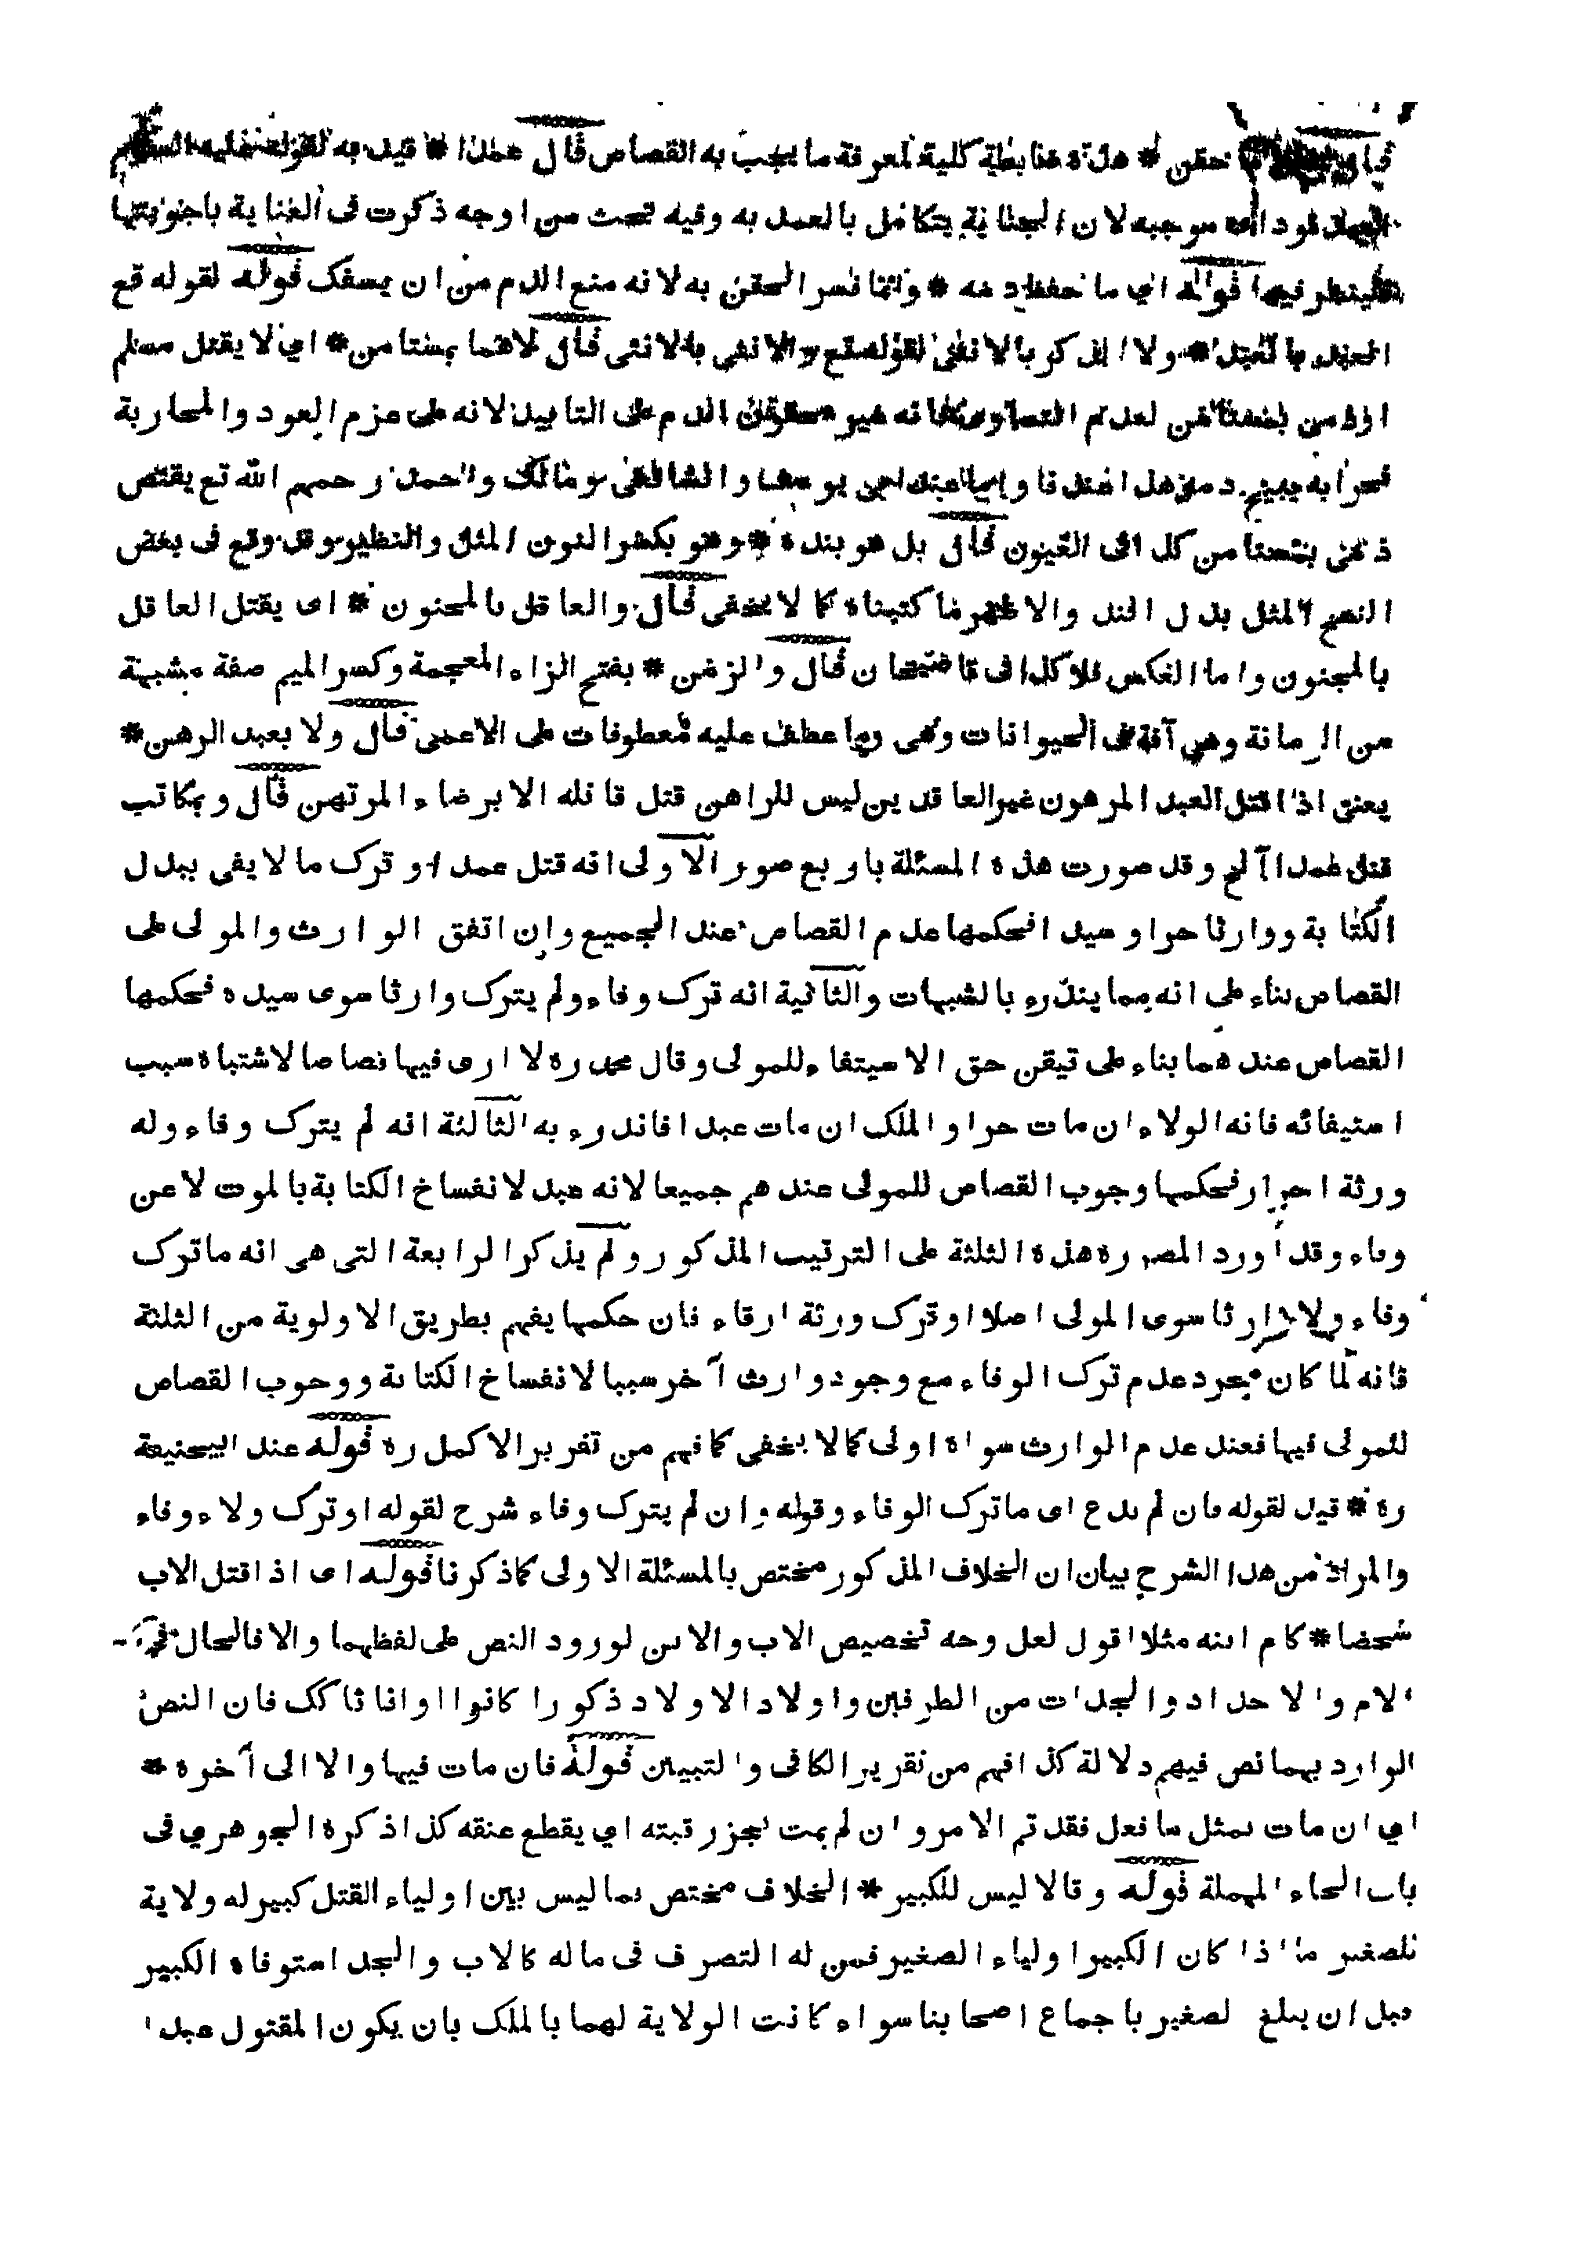 قال حقن * هذه ضابطة كلية لمعرفة ما يجب به القصاص قال عمدا * قيد به لقوله عليه السلام
العمد قود اى موجبه لان الجناية يتكامل بالعمد به وفيه بحث من اوجه ذكرت فى العناية باجوبتها
فلينظر فيها قوله اي ما حفظ دمه * وانما فسر الحقن به لانه منع الدم من ان يسفك قوله لقوله تع
العبد بالعبد * ولا بالانثى لقوله تع والانثى بالانثى قال لاهما بمستامن * اي لا يقتل مسلم
او ذمى بمستامن لعدم التساوى فانه غير محقون الدم على التابيد لانه على عزم العود والمحاربة
ابى يوسف والشافعى ومالك واحمد رحمهم الله تع يقتص
ذمى بمستامن كل فى العيون قال بل هو بنده * وهو بكسر النون المثل والنظير وقد وقع فى بعض
النسخ المثل بدل الند والاظهر ما كتبناه كما لا يخفى قال والعاقل بالمجنون * اى يقتل العاقل
بالمجنون واما العكس فلا كذا فى قاضيخان قال والزمن * بفتح الزاء المعجمة وكسر الميم صفة مشبهة
من الزمانة وهي آفة فى الحيوانات وهى وما عطف عليه معطوفات على الاعمى قال ولا بعبد الرهن *
يعنى اذا قتل العبد المرهون غير العاقدين ليس للراهن قتل قاتله الا برضاء المرتهن قال وبمكاتب
قتل عمدا آلخ وقد صورت هذه المسئلة باربع صور الاولى انه قتل عمدا و ترك ما لا يفى ببدل
الكتابة ووارثا حرا وسيدا فحكمها عدم القصاص عند الجميع وان اتفق الوارث والمولى على
القصاص بناء على انه مما يندرء بالشبهات والثانية انه ترك وفاء ولم يترك وارثا سوى سيده فحكمها
القصاص عندهما بناء على تيقن حق الاستيفاء للمولى وقال محمد ره لا ارى فيها قصاصا لاشتباه سبب
استيفائه فانه الولاء ان مات حرا والملك ان مات عبدا فاندرء به الثالثة انه لم يترك وفاء وله
ورثة احرار فحكمها وجوب القصاص للمولى عندهم جميعا لانه عبد لانفساخ الكتابة بالموت لا عن
وفاء وقد اورد المصر ره هذه الثلثة على الترتيب المذكور ولم يذكر الرابعة التى هى انه ما ترك
وفاء ولا وارثا سوى المولى اصلا او ترك ورثة ارقاء فان حكمها يفهم بطريق الاولوية من الثلثة
فانه لما كان مجرد عدم ترك الوفاء مع وجود وارث آخر سببا لانفساخ الكتابة ووجوب القصاص
للمولى فيها فعند عدم الوارث سواه اولى كما لا يخفى كما فهم من تقرير الاكمل ره قوله عند ابيحنيفة
ره * قيد لقوله فان لم يدع اى ما ترك الوفاء وقوله وان لم يترك وفاء شرح لقوله او ترك ولاء وفاء
والمراد من هذا الشرح بيان ان الخلاف المذكور مختص بالمسئلة الاولى كما ذكرنا قوله اى اذا قتل الاب
شخصا * كام ابنه مثلا اقول لعل وجه تخصيص الاب والابن لورود النص على لفظهما والا فالحال فى
الام والاجداد والجدات من الطرفين واولاد الاولاد ذكورا كانوا او اناثا كك فان النص
الوارد بهما نص فيهم دلالة كذا فهم من تقرير الكافى والتبيين قوله فان مات فيها والا الى آخره *
اي ان مات بمثل ما فعل فقد تم الامر وان لم يمت تجزر قبته اي يقطع عنقه كذا ذكره الجوهري فى
باب الحاء المهملة قوله وقالا ليس للكبير * الخلاف مختص بما ليس بين اولياء القتل كبير له ولاية
للصغير ما اذا كان الكبير اولياء الصغير فمن له التصرف فى ماله كالاب والجد استوفاه الكبير
قبل ان يبلغ الصغير باجماع اصحابنا سواء كانت الولاية لهما بالملك بان يكون المقتول عبدا